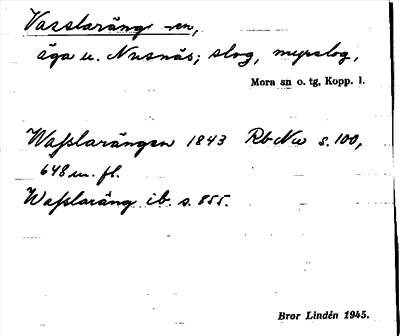 Vasslaräng -en,
äga u. Nusnäs; slog, myrslog,
Mora sn o. tg, Kopp. l.
Wasslarängen 1843 Rb Nu s. 100,
648 m. fl.
Wasslaräng ib. s. 855.
Bror Lindén 1945.